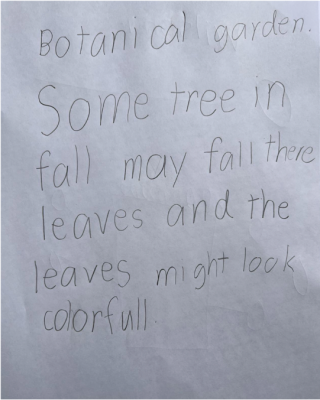 Botanical garden.
Some tree in
fall may fall there
leaves and the
leaves might look
colorfull.